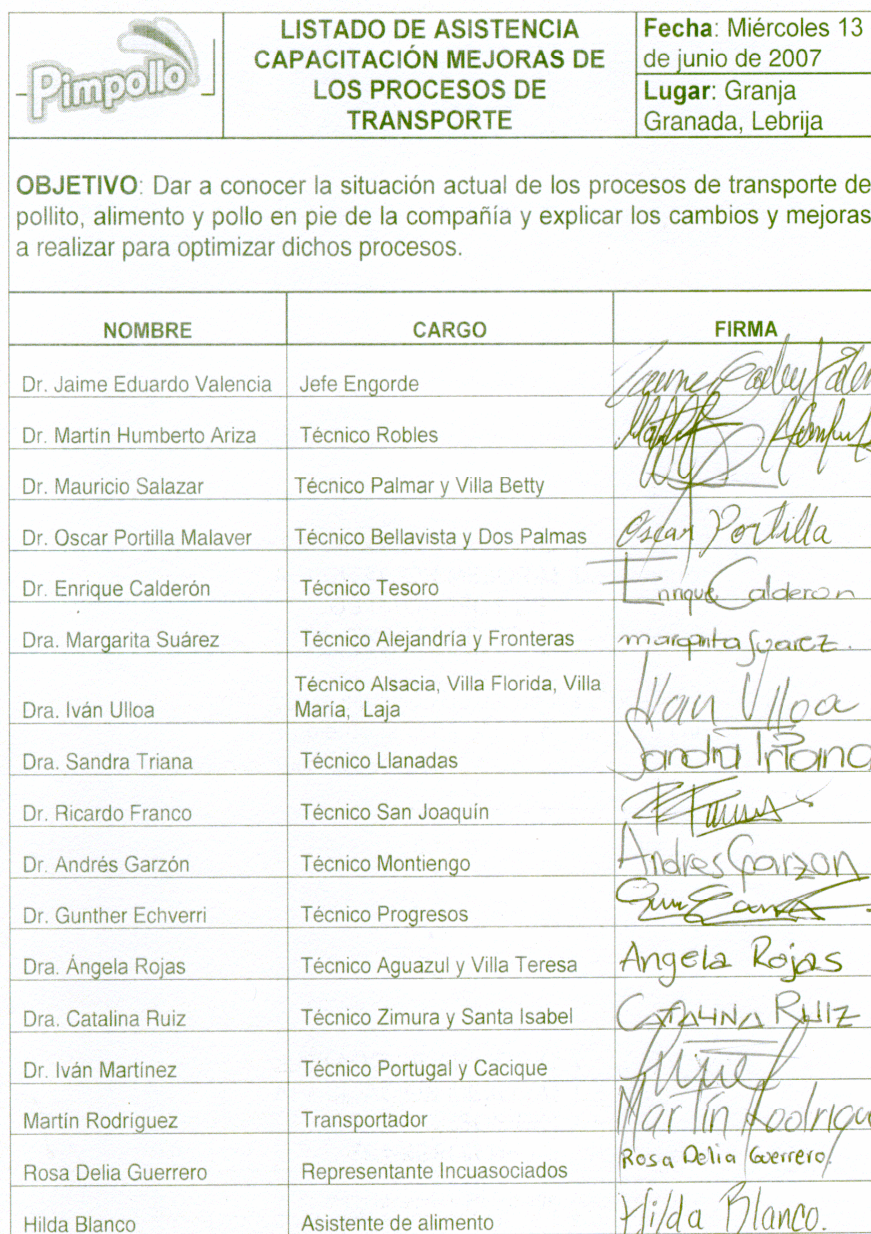 Pimpollo
LISTADO DE ASISTENCIA
CAPACITACIÓN MEJORAS DE
LOS PROCESOS DE
TRANSPORTE
Fecha: Miércoles 13
de junio de 2007
Lugar: Granja
Granada, Lebrija
OBJETIVO: Dar a conocer la situación actual de los procesos de transporte de
pollito, alimento y pollo en pie de la compañía y explicar los cambios y mejoras
a realizar para optimizar dichos procesos.
NOMBRE CARGO FIRMA
Dr. Jaime Eduardo Valencia Jefe Engorde
Dr. Martín Humberto Ariza Técnico Robles
Dr. Mauricio Salazar Técnico Palmar y Villa Betty
Dr. Oscar Portilla Malaver Técnico Bellavista y Dos Palmas Oscar Portilla
Dr. Enrique Calderón Técnico Tesoro Enrique Calderon
Dra. Margarita Suárez Técnico Alejandría y Fronteras margarita Suarez.
Técnico Alsacia, Villa Florida, Villa
Dra. Iván Ulloa María, Laja Ivan Ulloa
Dra. Sandra Triana Técnico Llanadas Sandra Triana
Dr. Ricardo Franco Técnico San Joaquín
Dr. Andrés Garzón Técnico Montiengo Andres Garzon
Dr. Gunther Echverri Técnico Progresos
Dra. Ángela Rojas Técnico Aguazul y Villa Teresa Angela Rojas
Dra. Catalina Ruiz Técnico Zimura y Santa Isabel CATALINA RUIZ
Dr. Iván Martínez Técnico Portugal y Cacique
Martín Rodríguez Transportador Martín Rodrigu
Rosa Delia Guerrero Representante Incuasociados Rosa Delia Guerrero.
Hilda Blanco Asistente de alimento Hilda Blanco.